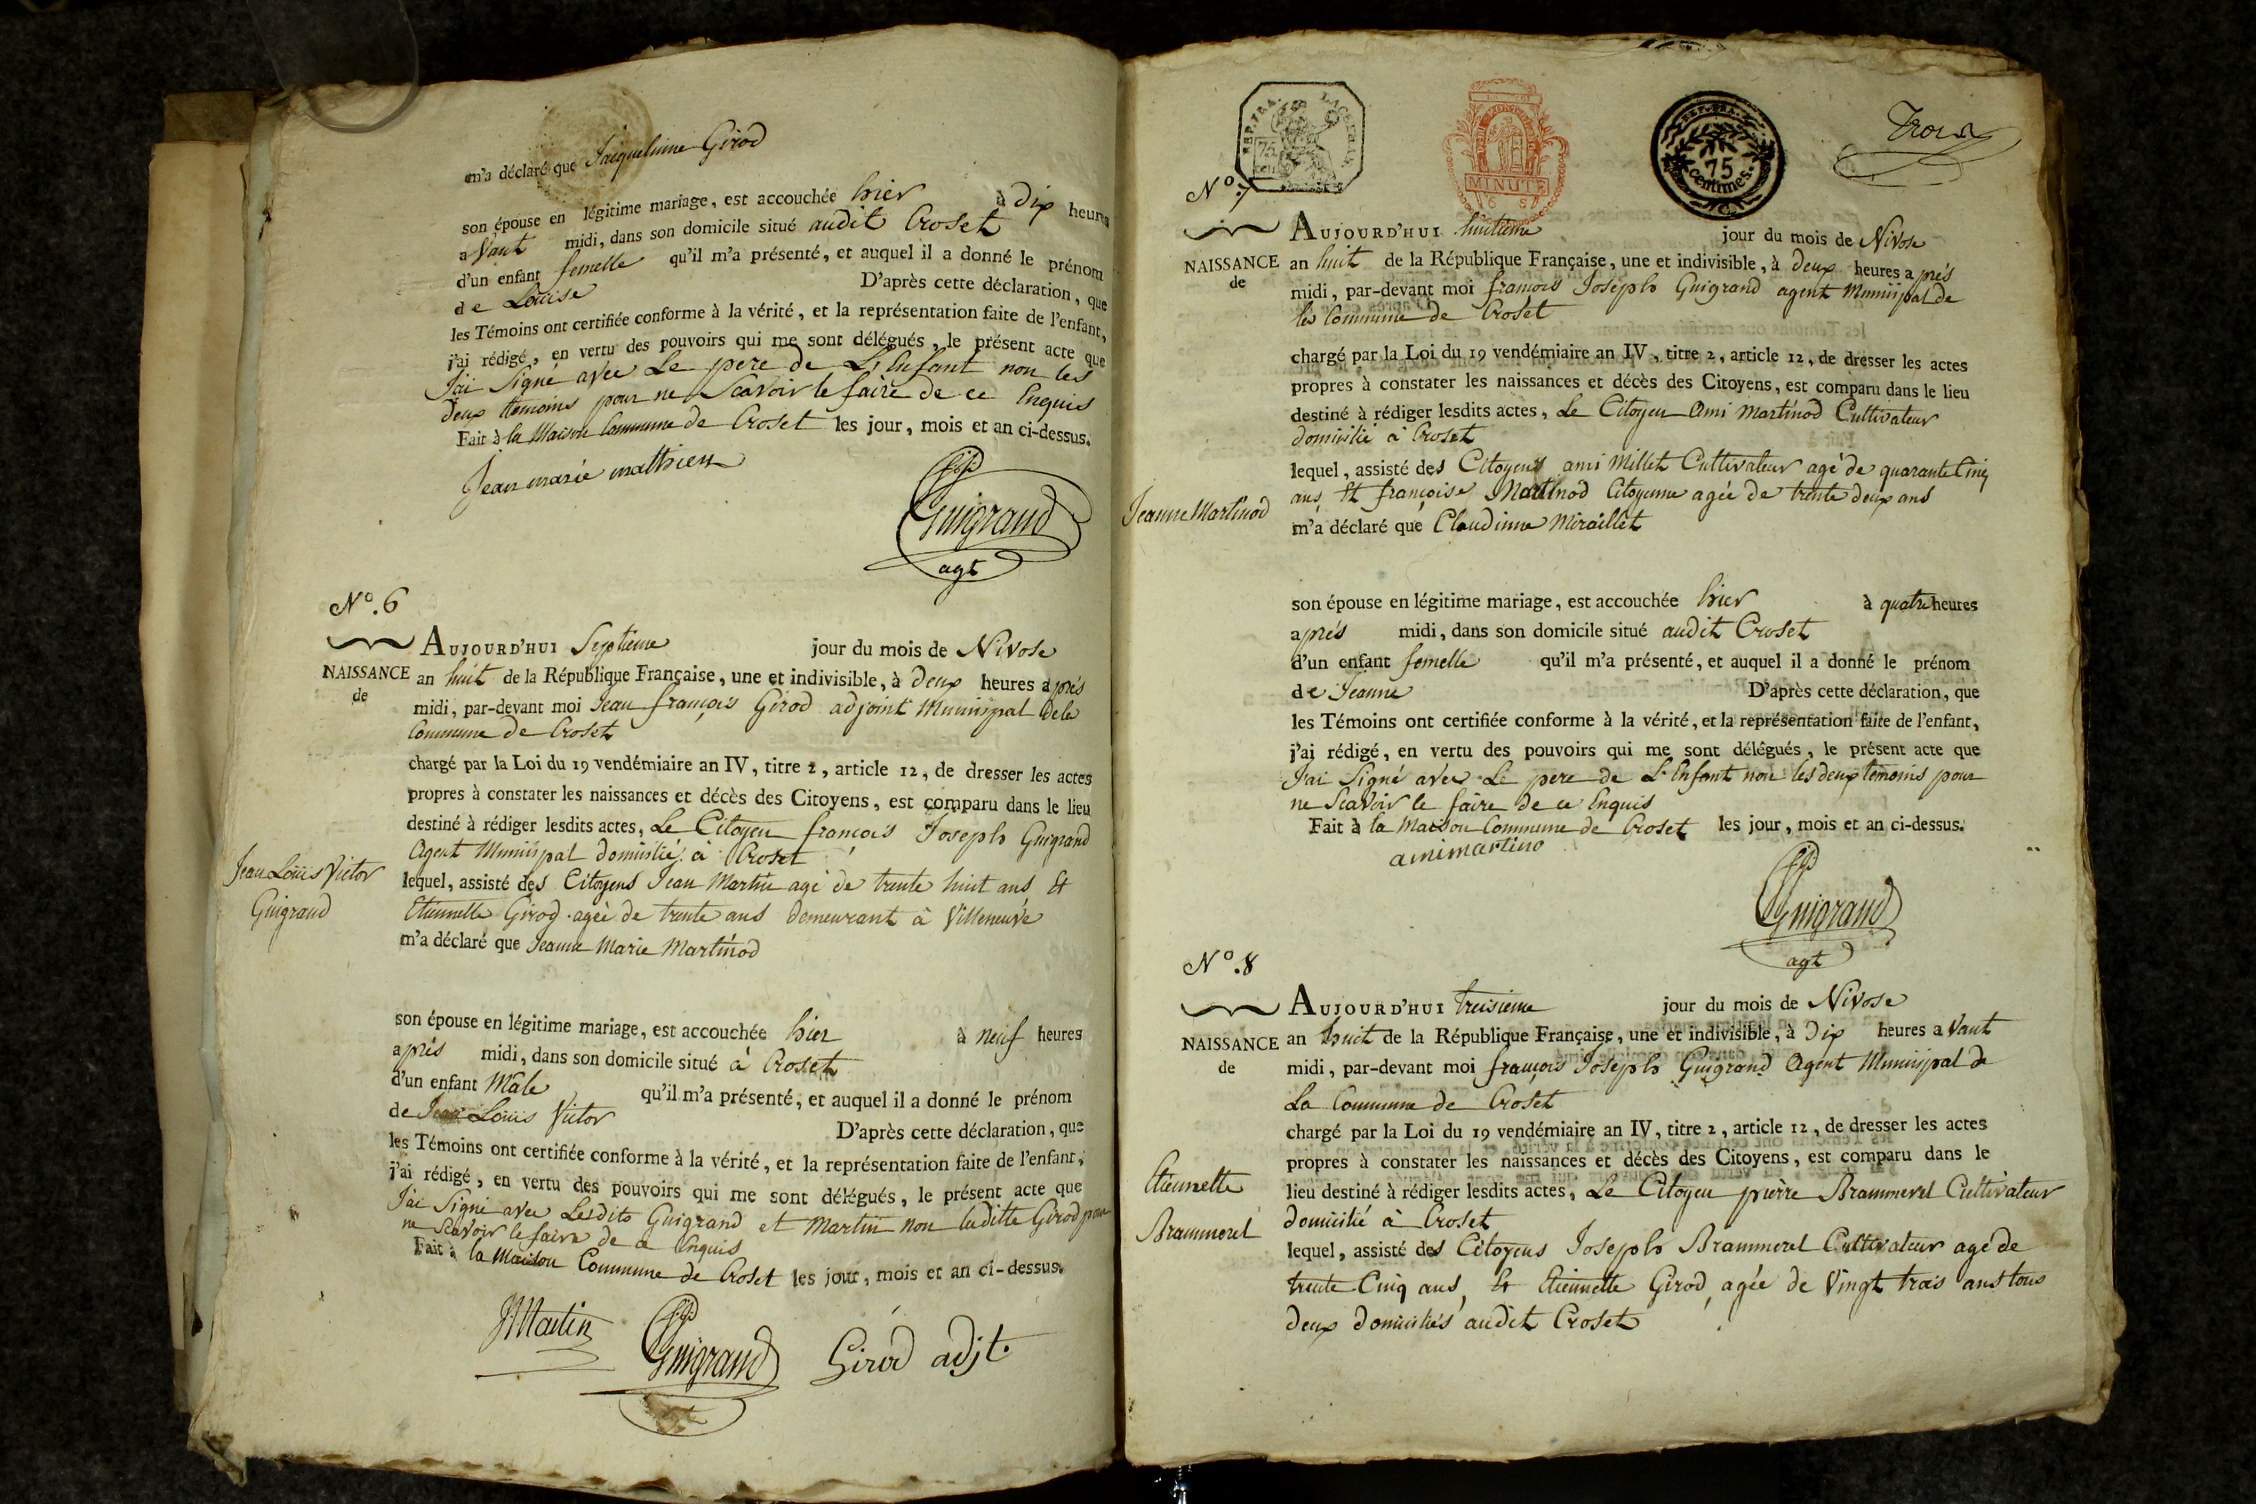 m'a déclaré que Jacqueline Girod
son épouse en légitime mariage, est accouchée hier à Dix heures
avant midi, dans son domicile situé audit Croset
d'un enfant femelle qu'il m'a présenté, et auquel il a donné le prénom
de Louise D'après cette déclaration, que
les Témoins ont certifiée conforme à la vérité, et la représentation faite de l'enfant,
j'ai rédigé, en vertu des pouvoirs qui me sont délégués, le présent acte que
J'ai Signé avec Le pere de L'Enfant non les
deux temoins pour ne Scavoir le faire de ce Enquis
Fait à la Maison Commune de Croset les jour, mois et an ci-dessus.
Jean marie mathieu
Guigrand
agt
N°. 6
AUJOURD'HUI Septieme jour du mois de Nivose
NAISSANCE de
an huit de la République Française, une et indivisible, à Deux heures après
midi, par-devant moi Jean françois Girod adjoint Municipal de la
Commune de Croset
chargé par la Loi du 19 vendémiaire an IV, titre 2, article 12, de dresser les actes
propres à constater les naissances et décès des Citoyens, est comparu dans le lieu
destiné à rédiger lesdits actes, Le Citoyen françois Joseph Guigrand
Agent Municipal domicilié à Croset
Jean Louis Victor
Guigrand
lequel, assisté des Citoyens Jean Martin agé de trente huit ans Et
Etiennette Girod agée de trente ans demeurant à Villeneuve
m'a déclaré que Jeanne Marie Martinod
son épouse en légitime mariage, est accouchée hier à neuf heures
après midi, dans son domicile situé à Croset
d'un enfant Mâle qu'il m'a présenté, et auquel il a donné le prénom
de Jean Louis Victor D'après cette déclaration, que
les Témoins ont certifiée conforme à la vérité, et la représentation faite de l'enfant,
j'ai rédigé, en vertu des pouvoirs qui me sont délégués, le présent acte que
J'ai Signé avec Lesdits Guigrand et Martin non laditte Girod pour
ne Scavoir le faire de ce Enquis
Fait à la Maison Commune de Croset les jour, mois et an ci-dessus.
JMartin Guigrand Girod adjt.
REP. FRA. 75 cen
MINUTE
REP. FRA. 75 centimes.
Trois
N°. 7
AUJOURD'HUI huitieme jour du mois de Nivose
NAISSANCE de
an huit de la République Française, une et indivisible, à deux heures après
midi, par-devant moi francois Joseph Guigrand agent Municipal de
la Commune de Croset
chargé par la Loi du 19 vendémiaire an IV, titre 2, article 12, de dresser les actes
propres à constater les naissances et décès des Citoyens, est comparu dans le lieu
destiné à rédiger lesdits actes, Le Citoyen Ami Martinod Cultivateur
domicilié à Croset
lequel, assisté des Citoyens ami Millet Cultivateur agé de quarante Cinq
ans, Et françoise Martinod Citoyenne agée de trente deux ans
Jeanne Martinod
m'a déclaré que Claudinne Miraillet
son épouse en légitime mariage, est accouchée hier à quatre heures
après midi, dans son domicile situé audit Croset
d'un enfant femelle qu'il m'a présenté, et auquel il a donné le prénom
de Jeanne D'après cette déclaration, que
les Témoins ont certifiée conforme à la vérité, et la représentation faite de l'enfant,
j'ai rédigé, en vertu des pouvoirs qui me sont délégués, le présent acte que
J'ai Signé avec Le pere de L'Enfant non les deux temoins pour
ne Scavoir le faire de ce Enquis
Fait à la Maison Commune de Croset les jour, mois et an ci-dessus.
ami martino
Guigrand
agt
N°. 8
AUJOURD'HUI treisieme jour du mois de Nivose
NAISSANCE de
an huit de la République Française, une et indivisible, à Dix heures avant
midi, par-devant moi françois Joseph Guigrand Agent Municipal de
La Commune de Croset
chargé par la Loi du 19 vendémiaire an IV, titre 2, article 12, de dresser les actes
propres à constater les naissances et décès des Citoyens, est comparu dans le
lieu destiné à rédiger lesdits actes, Le Citoyen pierre Brammerel Cultivateur
domicilié à Croset
Etiennette
Brammerel
lequel, assisté des Citoyens Joseph Brammerel Cultivateur agé de
trente Cinq ans, Et Etiennette Girod, agée de Vingt trois ans tous
deux domiciliés audit Croset